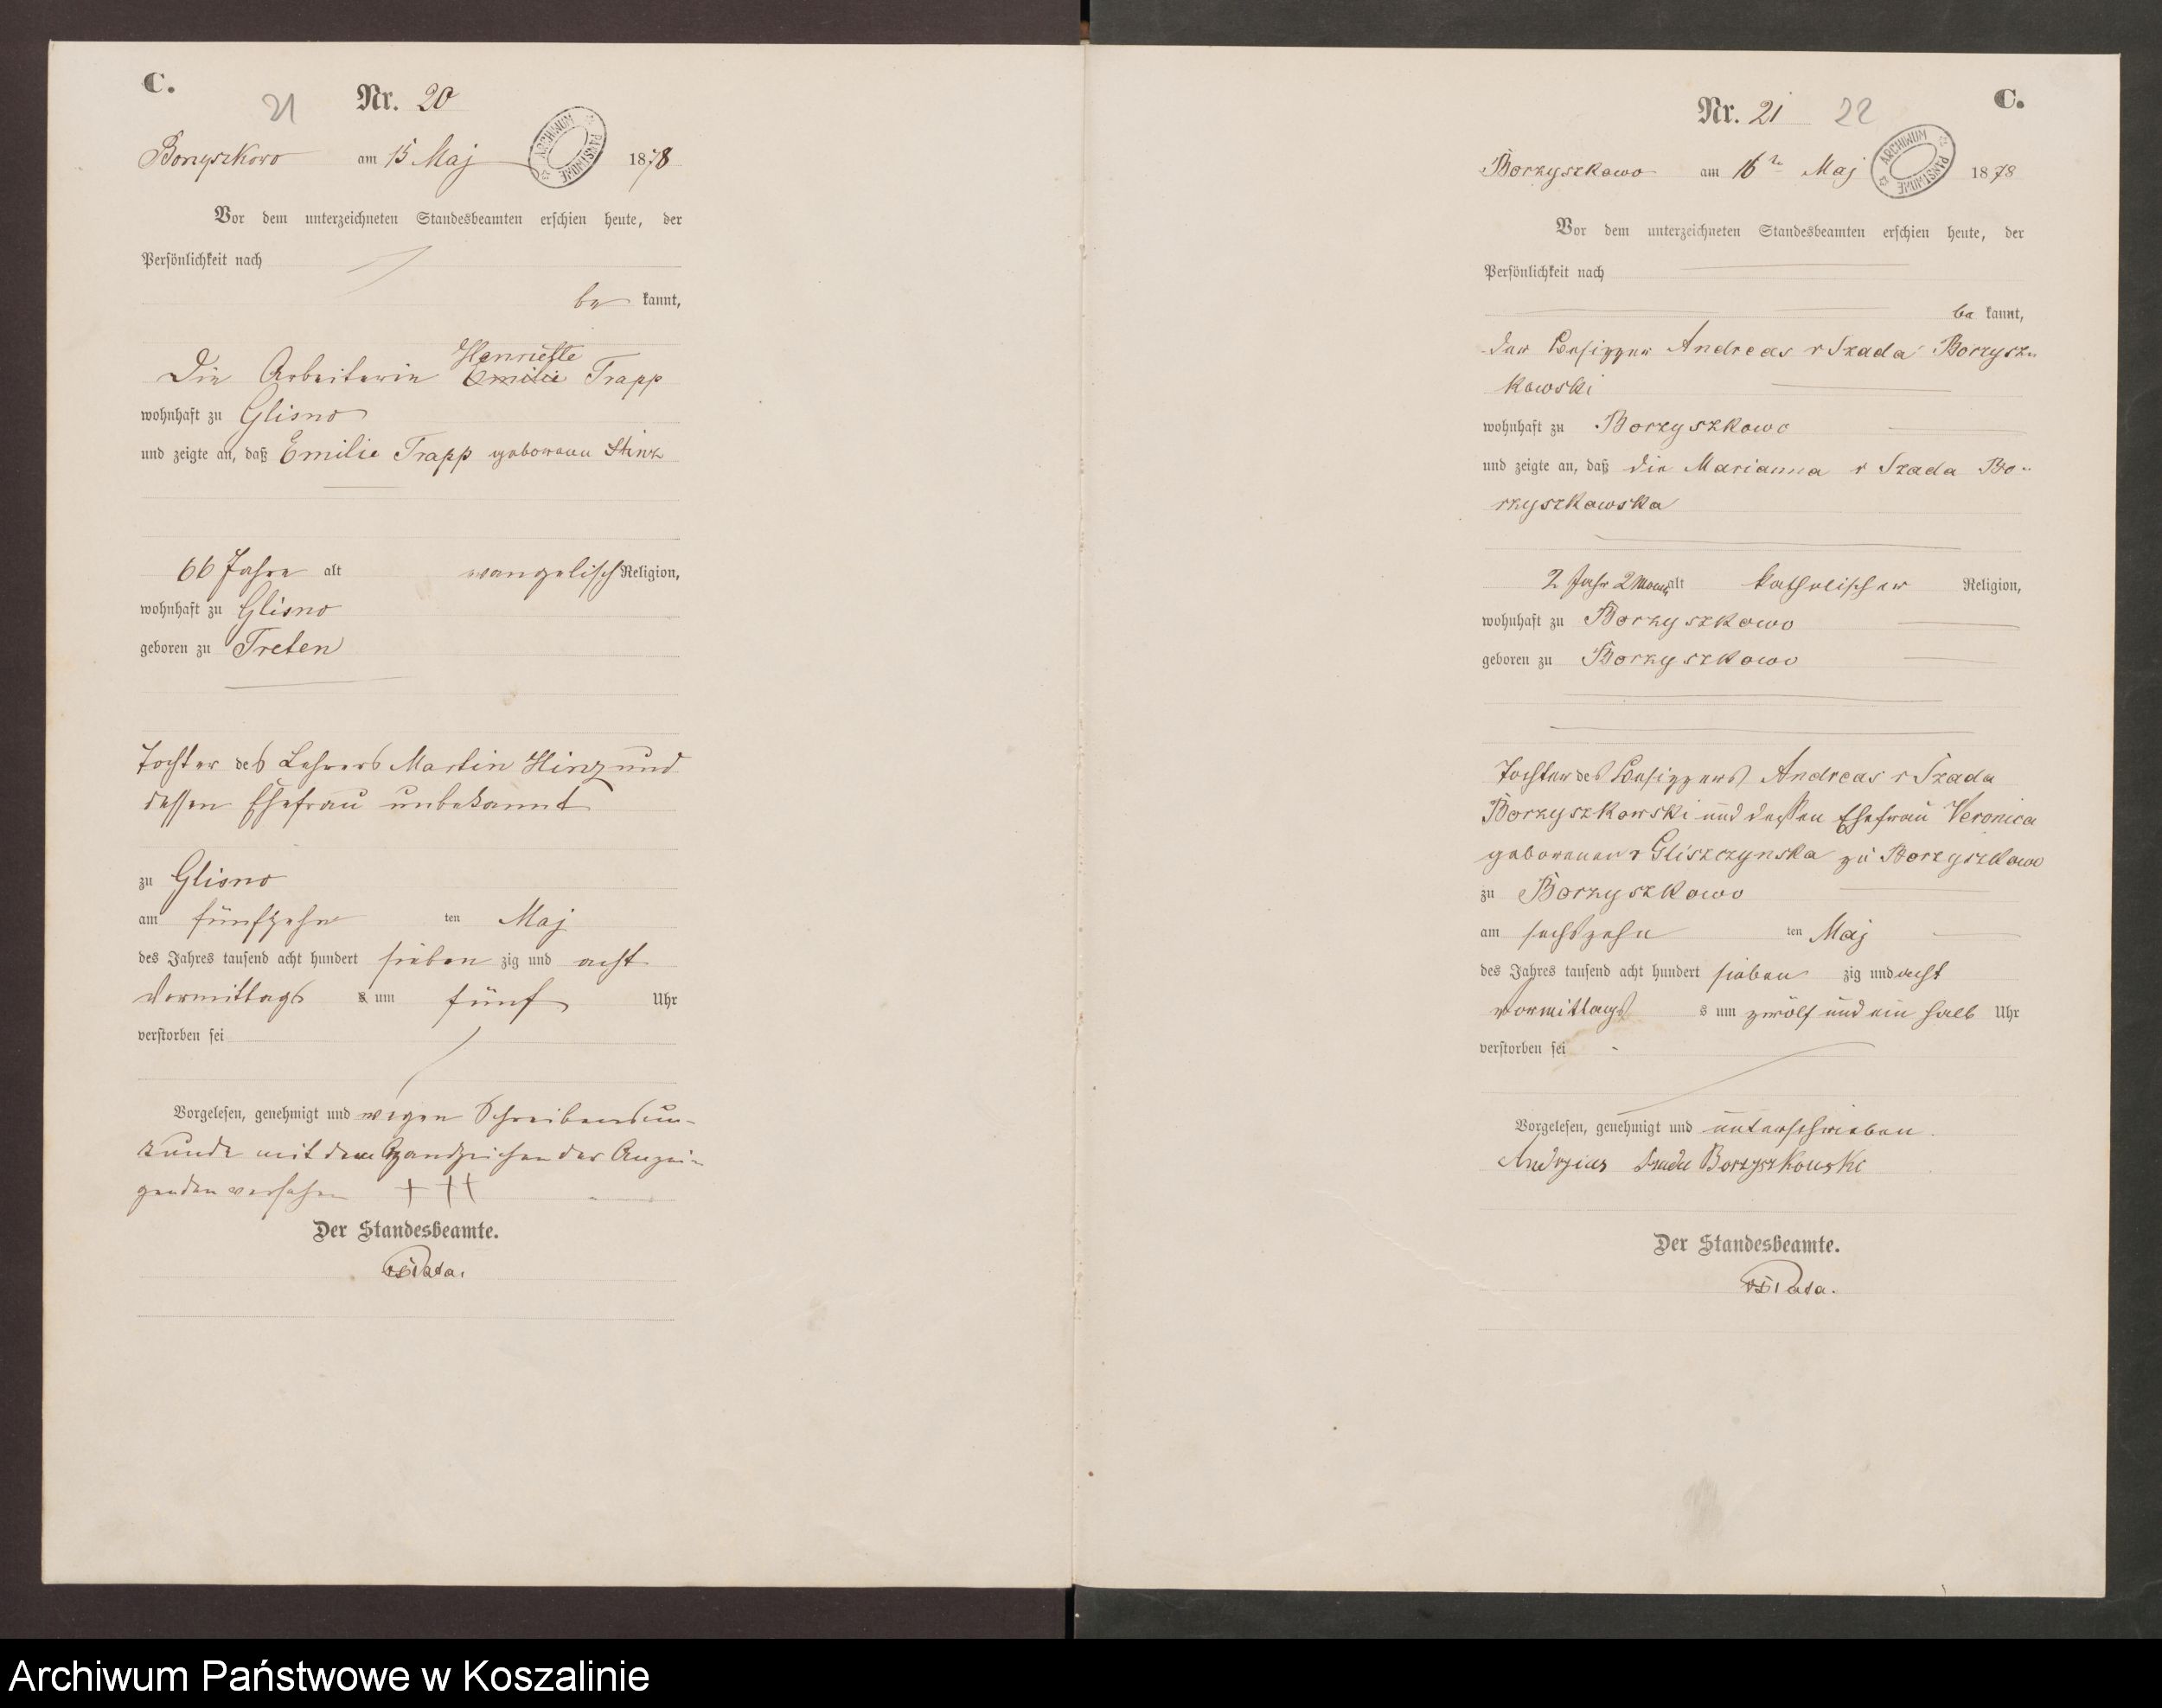 C.
21 Nr. 20
Borzyszkowo am 15 Maj 1878
ARCHIWUM PAŃSTWOWE
Vor dem unterzeichneten Standesbeamten erschien heute, der
Persönlichkeit nach
be kannt,
Henriette
Die Arbeiterin Emilie Trapp
wohnhaft zu Glisno
und zeigte an, daß Emilie Trapp geborene Hinz
66 Jahre alt evangelisch Religion,
wohnhaft zu Glisno
geboren zu Treten
Tochter des Lehrers Martin Hinz und
dessen Ehefrau unbekannt
zu Glisno
am fünfzehn ten Maj
des Jahres tausend acht hundert sieben zig und acht
Vormittags s um fünf Uhr
verstorben sei
Vorgelesen, genehmigt und wegen Schreibensun-
kunde mit dem Handzeichen der Anzei-
genden versehen + ++
Der Standesbeamte.
C.
Nr. 21 22
Borzyszkowo am 16 Maj 1878
ARCHIWUM PAŃSTWOWE
Vor dem unterzeichneten Standesbeamten erschien heute, der
Persönlichkeit nach
be kannt,
der Besitzer Andreas v Szada Borzysz-
kowski
wohnhaft zu Borzyszkowo
und zeigte an, daß die Marianna v Szada Bo-
rzyszkowska
2 Jahr 2 Monat alt katholischer Religion,
wohnhaft zu Borzyszkowo
geboren zu Borzyszkowo
Tochter des Besitzers Andreas v Szada
Borzyszkowski und dessen Ehefrau Veronica
geborenen v Gliszczynska zu Borzyszkowo
zu Borzyszkowo
am sechszehn ten Maj
des Jahres tausend acht hundert sieben zig und acht
vormittags s um zwölf und ein halb Uhr
verstorben sei
Vorgelesen, genehmigt und unterschrieben.
Andrzias Szada Borzyszkowski
Der Standesbeamte.
Archiwum Państwowe w Koszalinie